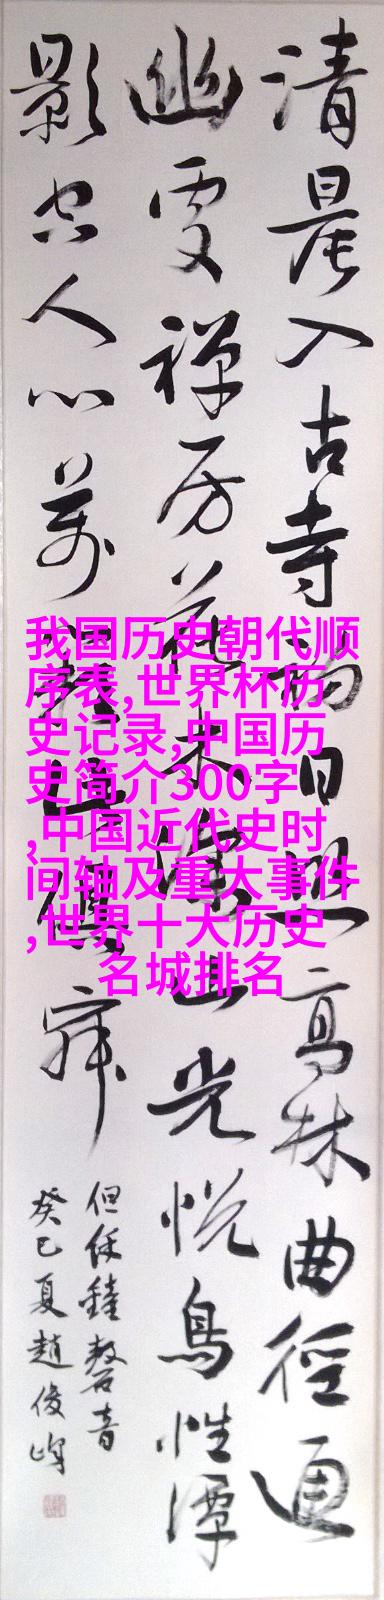 清晨入古寺初日照高林曲徑通
幽處禪房花木深山光悦鳥性潭
影空人心萬籟此俱寂
但余鐘磬音
癸巳夏趙俊峰
我国历史朝代顺
序表,世界杯历
史记录,中国历
史简介300字
,中国近代史时
间轴及重大事件
,世界十大历史
名城排名